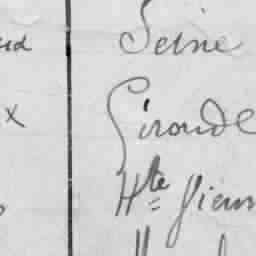 Seine
x Gironde
Hte Vienn